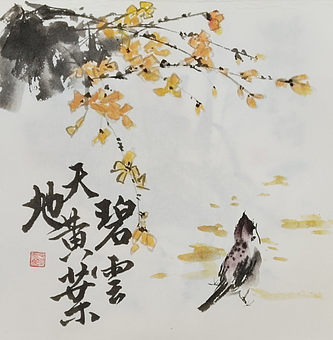 碧雲
天黃葉
地